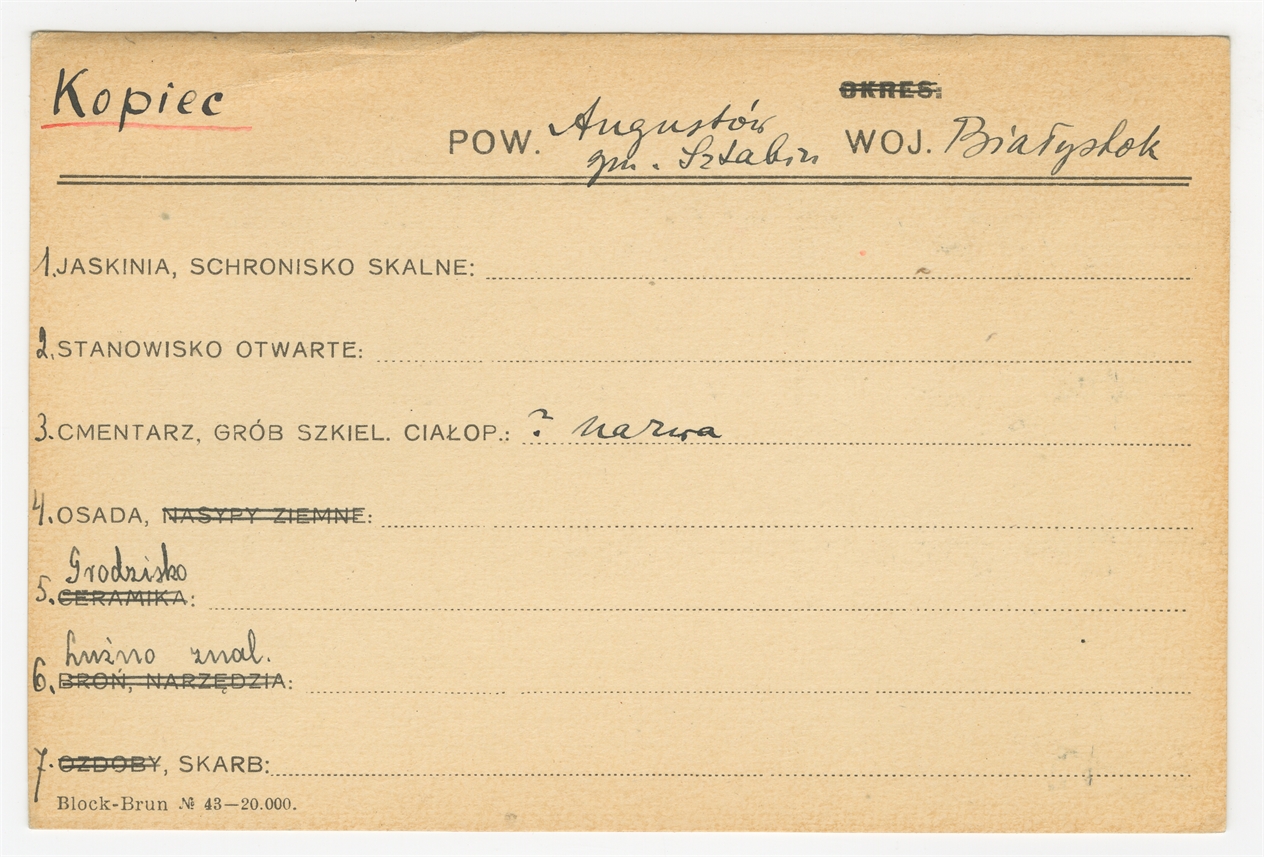 Kopiec
OKRES:
POW. Augustów WOJ. Białystok
gm. Sztabin
1. JASKINIA, SCHRONISKO SKALNE:
2. STANOWISKO OTWARTE:
3. CMENTARZ, GRÓB SZKIEL. CIAŁOP.: ? nazwa
4. OSADA, NASYPY ZIEMNE:
Grodzisko
5. CERAMIKA:
Luźno znal.
6. BROŃ, NARZĘDZIA:
7. OZDOBY, SKARB:
Block-Brun № 43—20.000.